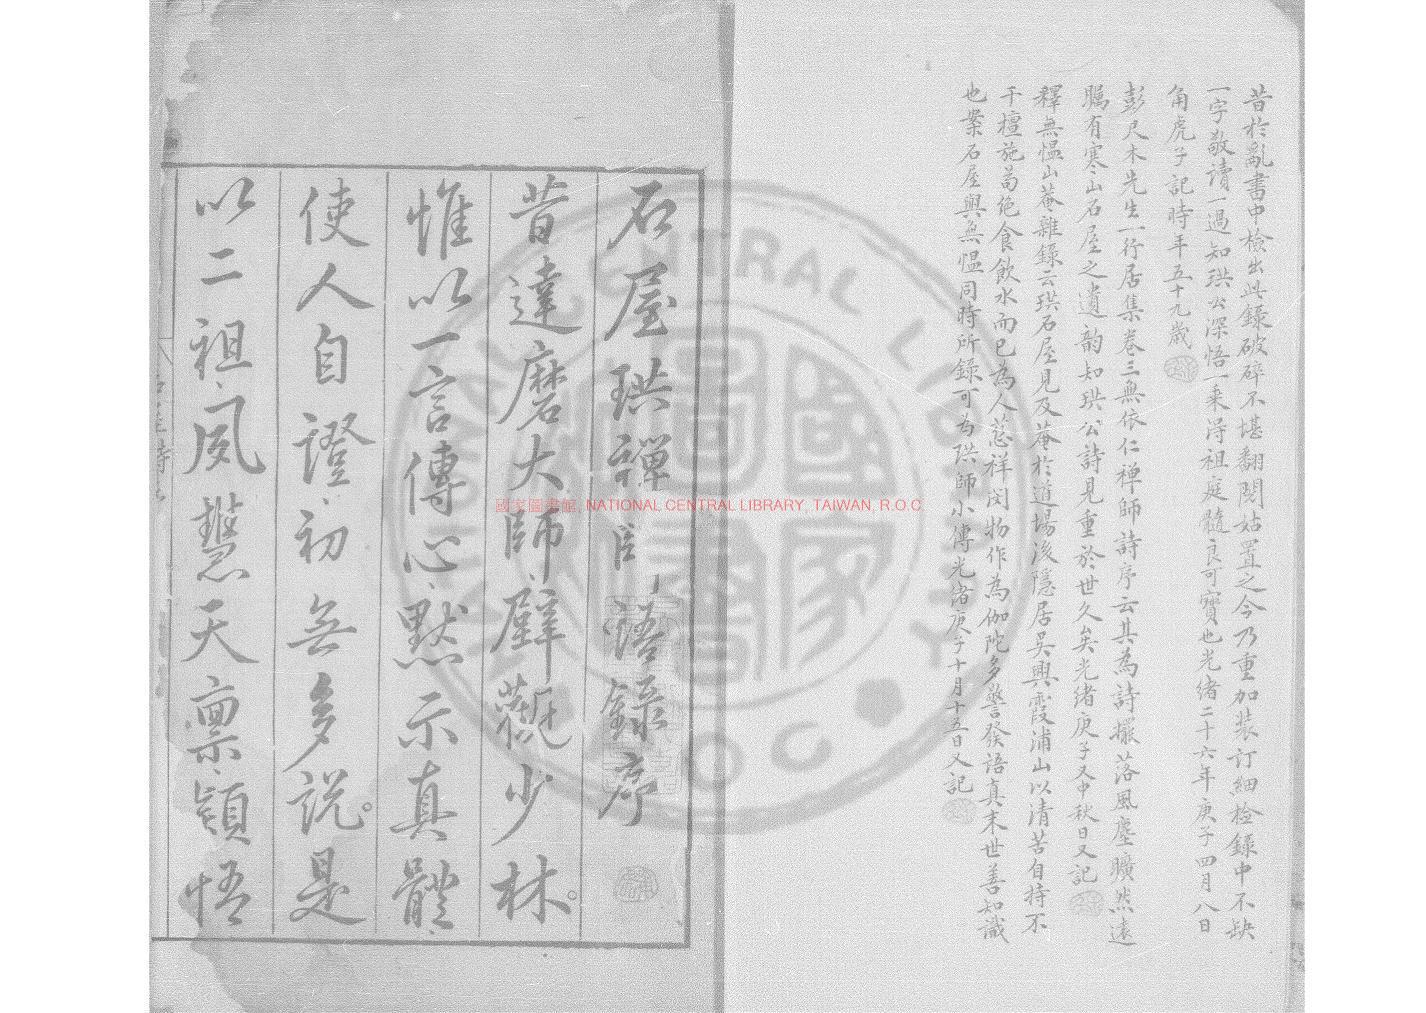 昔於亂書中檢出此錄破碎不堪翻閱姑置之今乃重加裝订細檢錄中不缺
一字敬讀一過知珙公深悟一乘淂祖庭髓良可寶也光緒二十六年庚子四月八日
角虎子記時年五十九歲
彭尺木先生一行居集卷三無依仁禅師詩序云其為詩擺落風塵曠然遠
矚有寒山石屋之遺韵知珙公詩見重於世久矣光緒庚子又中秋日又記
釋無愠山菴雜錄云珙石屋見及菴於道場後隱居吳興霞浦山以清苦自持不
干檀施苟绝食飲水而已為人慈祥闵物作為伽陀多警發語真末世善知識
也案石屋與無愠同時所錄可为珙師小傳光緒庚子十月十五日又記
石屋珙禪師語錄序
昔達磨大師、壁觀少林。
惟以一言傳心、默示真體、
使人自證、初無多說。是
以二祖、夙慧天禀、穎悟
國家圖書館, NATIONAL CENTRAL LIBRARY, TAIWAN, R.O.C
國家圖書
NATIONAL CENTRAL LIBRARY
R.O.C